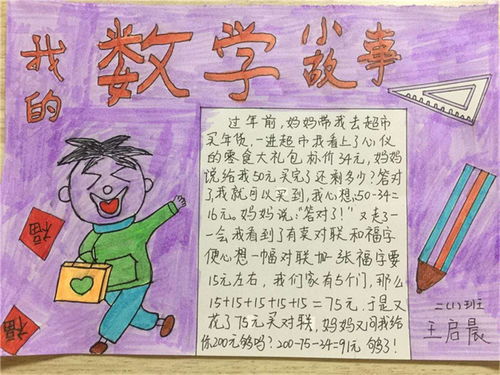 我的
数学小故事
过年前,妈妈带我去超市
买年货,一进超市我看上了心仪
的零食大礼包标价34元,妈妈
说给我50元买完了还剩多少?答对
了,我就可以买到,我心想,50-34=
16元。妈妈说:“答对了!”又走了一
一会我看到了有卖对联和福字
便心想一幅对联加一张福字要
15元左右,我们家有5个门,那么
15+15+15+15+15=75元,于是又
花了75元买对联,妈妈又问我给
你200元够吗?200-75-34=91元 够了!
福
福
二(1)班
王启晨